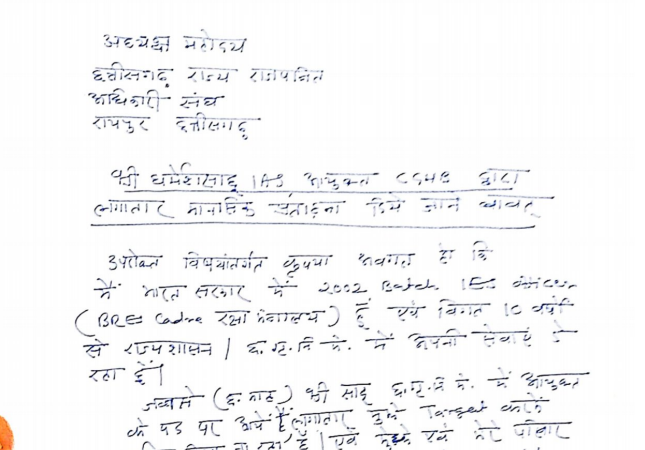 अध्यक्ष महोदय
छत्तीसगढ़ राज्य राजपत्रित
अधिकारी संघ
रायपुर छत्तीसगढ़
श्री धर्मेश साहू IAS आयुक्त CGHB द्वारा
लगातार मानसिक प्रताड़ना दिये जाने बाबत्
उपरोक्त विषयांतर्गत कृपया अवगत हो कि
मैं भारत सरकार में 2002 Batch IES officer
(BRES Cadre रक्षा मंत्रालय) हूँ एवं विगत 10 वर्षों
से राज्य शासन / छ.गृ.नि.मं. में अपनी सेवाएं दे
रहा हूँ।
जबसे श्री साहू छ.गृ.नि.मं. में आयुक्त
के पद पर आयें हैं लगातार मुझे Target करके
जा रहा है। एवं मुझे एवं मेरे परिवार